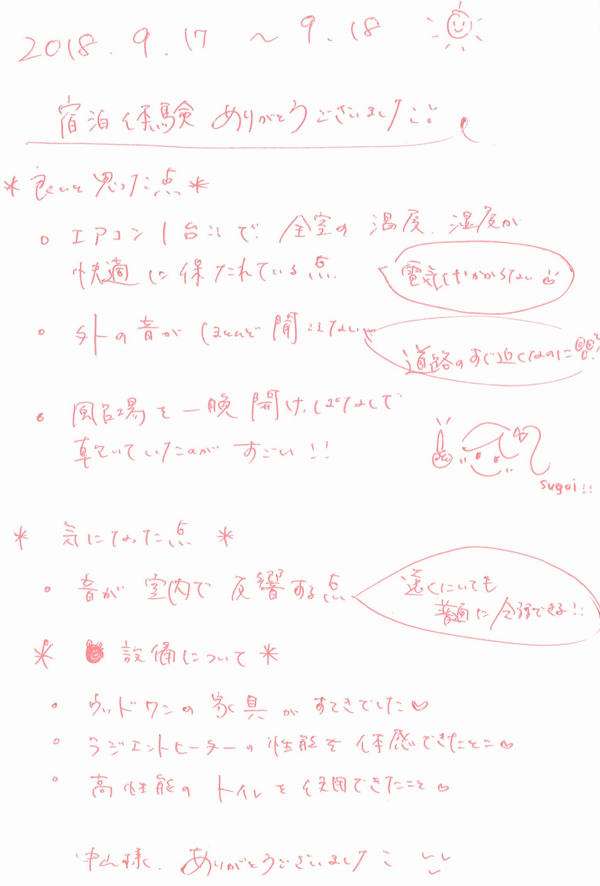 2018.9.17 ～ 9.18
宿泊体験 ありがとうございました
*良いと思った点*
エアコン1台で 全室の 温度、湿度が
快適に保たれている点
電気代がかからない
・外の音が ほとんど 聞こえない
道路のすぐ近くなのに!!
・風呂場を一晩 開けっぱなしで
乾いていたのが すごい!!
sugoi!!
* 気になった点 *
・音が 室内で 反響する点
遠くにいても
普通に会話できる!!
* 設備について *
・ウッドワンの 家具が すてきでした♡
・ラジエントヒーターの 性能を 体感できたこと♡
・高性能の トイレを使用できたこと♡
中山様、ありがとうございました